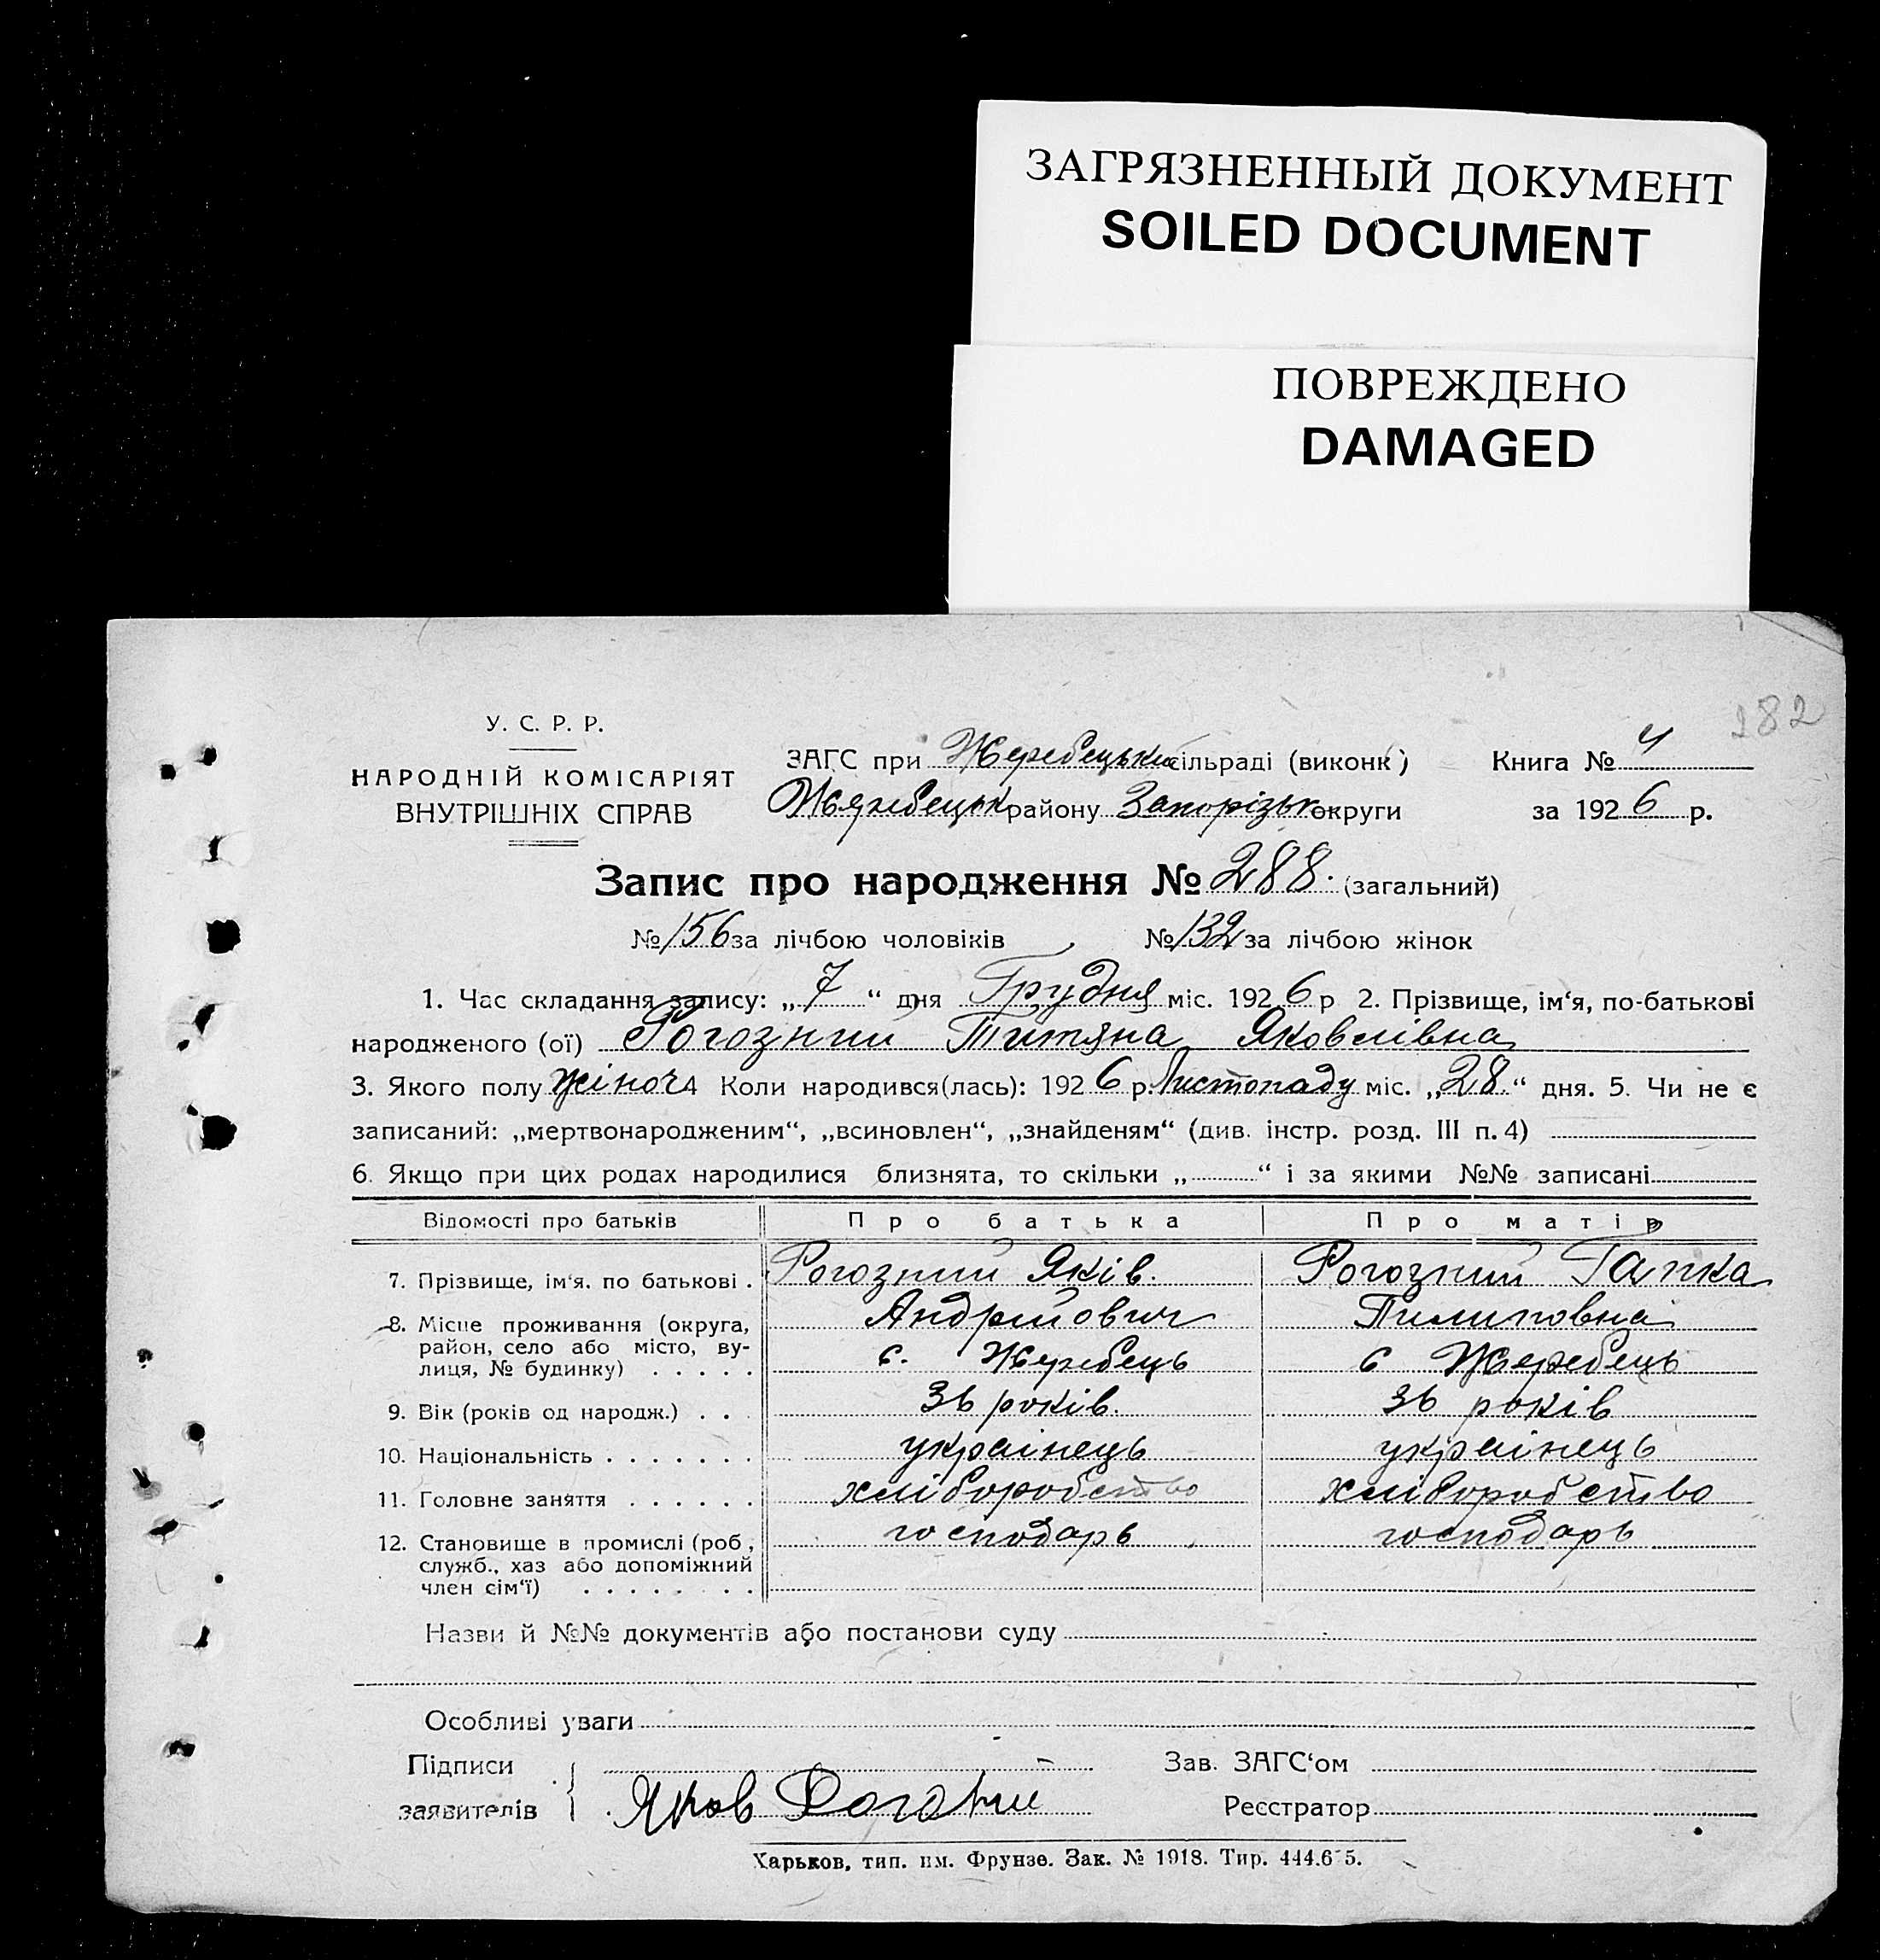 ЗАГРЯЗНЕННЫЙ ДОКУМЕНТ
SOILED DOCUMENT
ПОВРЕЖДЕНО
DAMAGED
182
У. С. Р. Р.
НАРОДНІЙ КОМІСАРІЯТ
ВНУТРІШНІХ СПРАВ
ЗАГС при Жеребецький сільраді (виконк) Книга № 4
Жеребецьк району Запорізьк округи за 1926 р.
Запис про народження № 288. (загальний)
№ 156 за лічбою чоловіків № 132 за лічбою жінок
1. Час складання запису: „7“ дня Грудня міс. 1926 р 2. Прізвище, ім‘я, по-батькові
народженого (ої) Рогозний Титяна Яковлівна
3. Якого полу жіноч 4 Коли народився(лась): 1926 р. Листопаду міс. „28“ дня. 5. Чи не є
записаний: „мертвонародженим“, „всиновлен“, „знайденям“ (див. інстр. розд. III п. 4)
6. Якщо при цих родах народилися близнята, то скільки „ “ і за якими №№ записані
Відомості про батьків Про батька Про матір
7. Прізвище, ім‘я, по батькові . Рогозний Яків. Рогозний Гапка
8. Місце проживання (округа, Андрийович Пилиповна
район, село або місто, ву-
лиця, № будинку) . . . . . с. Жеребець с Жеребець
9. Вік (років од народж.) . . . 36 років. 36 років
10. Національність . . . . . . . українець українець
11. Головне заняття . . . . . . хліборобство хліборобство
12. Становище в промислі (роб., господарь господарь
служб., хаз або допоміжний
член сім‘ї) . . . . . . . .
Назви й №№ документів або постанови суду
Особливі уваги
Підписи Зав. ЗАГС‘ом
заявителів Яков Рогозний Реєстратор
Харьков, тип. им. Фрунзе. Зак. № 1918. Тир.